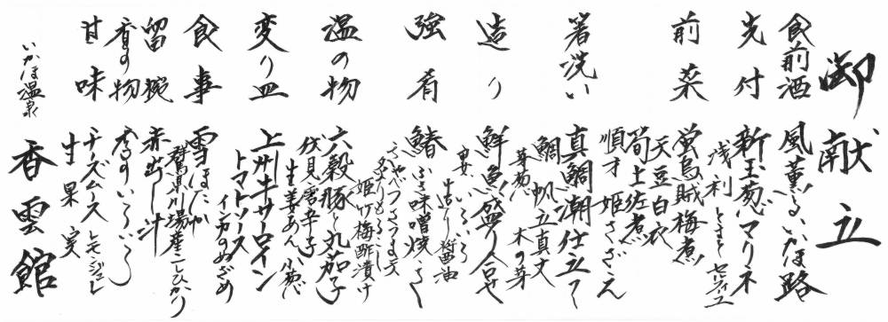 御献立
食前酒 風薫るいかほ路
先付 新玉葱マリネ
浅利 とまと セルフィーユ
前菜 蛍烏賊梅煮
天豆白衣
筍土佐煮
順才 姫さざえ
箸洗い 真鯛潮仕立て
鯛 帆立真丈
芽葱 木の芽
造り 鮮魚盛り合せ
妻いろいろ
造り醤油
強肴 鰆ふき味噌焼
きゃべつ
姫竹梅酢漬け
温の物 六穀豚と丸茄子
伏見唐辛子
生姜あん 小葱
変り皿 上州牛サーロイン
トマトソース
インカのめざめ
食事 雪ほたか
群馬県川場産こしひかり
留椀 赤出し汁
香の物 香のいろいろ
甘味 チーズムース レモンジュレ
生果実
いかほ温泉 香雲館